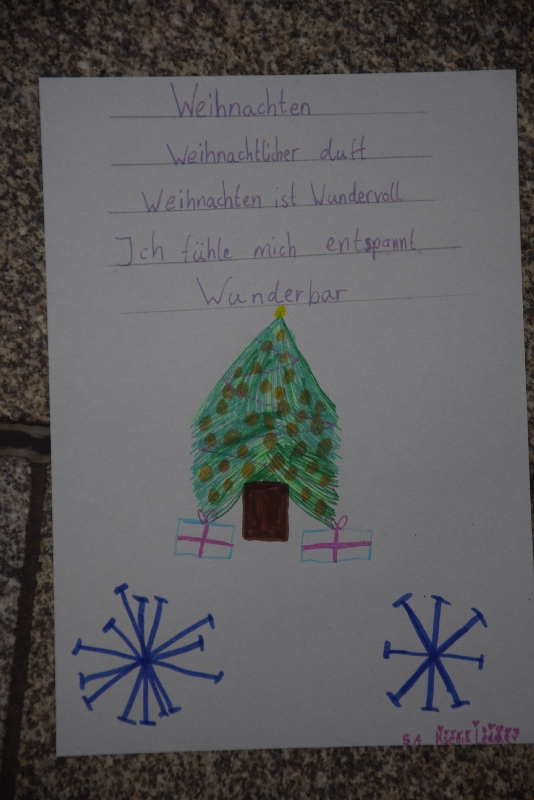 Weihnachten
Weihnachtlicher duft
Weihnachten ist Wundervoll
Ich fühle mich entspannt
Wunderbar